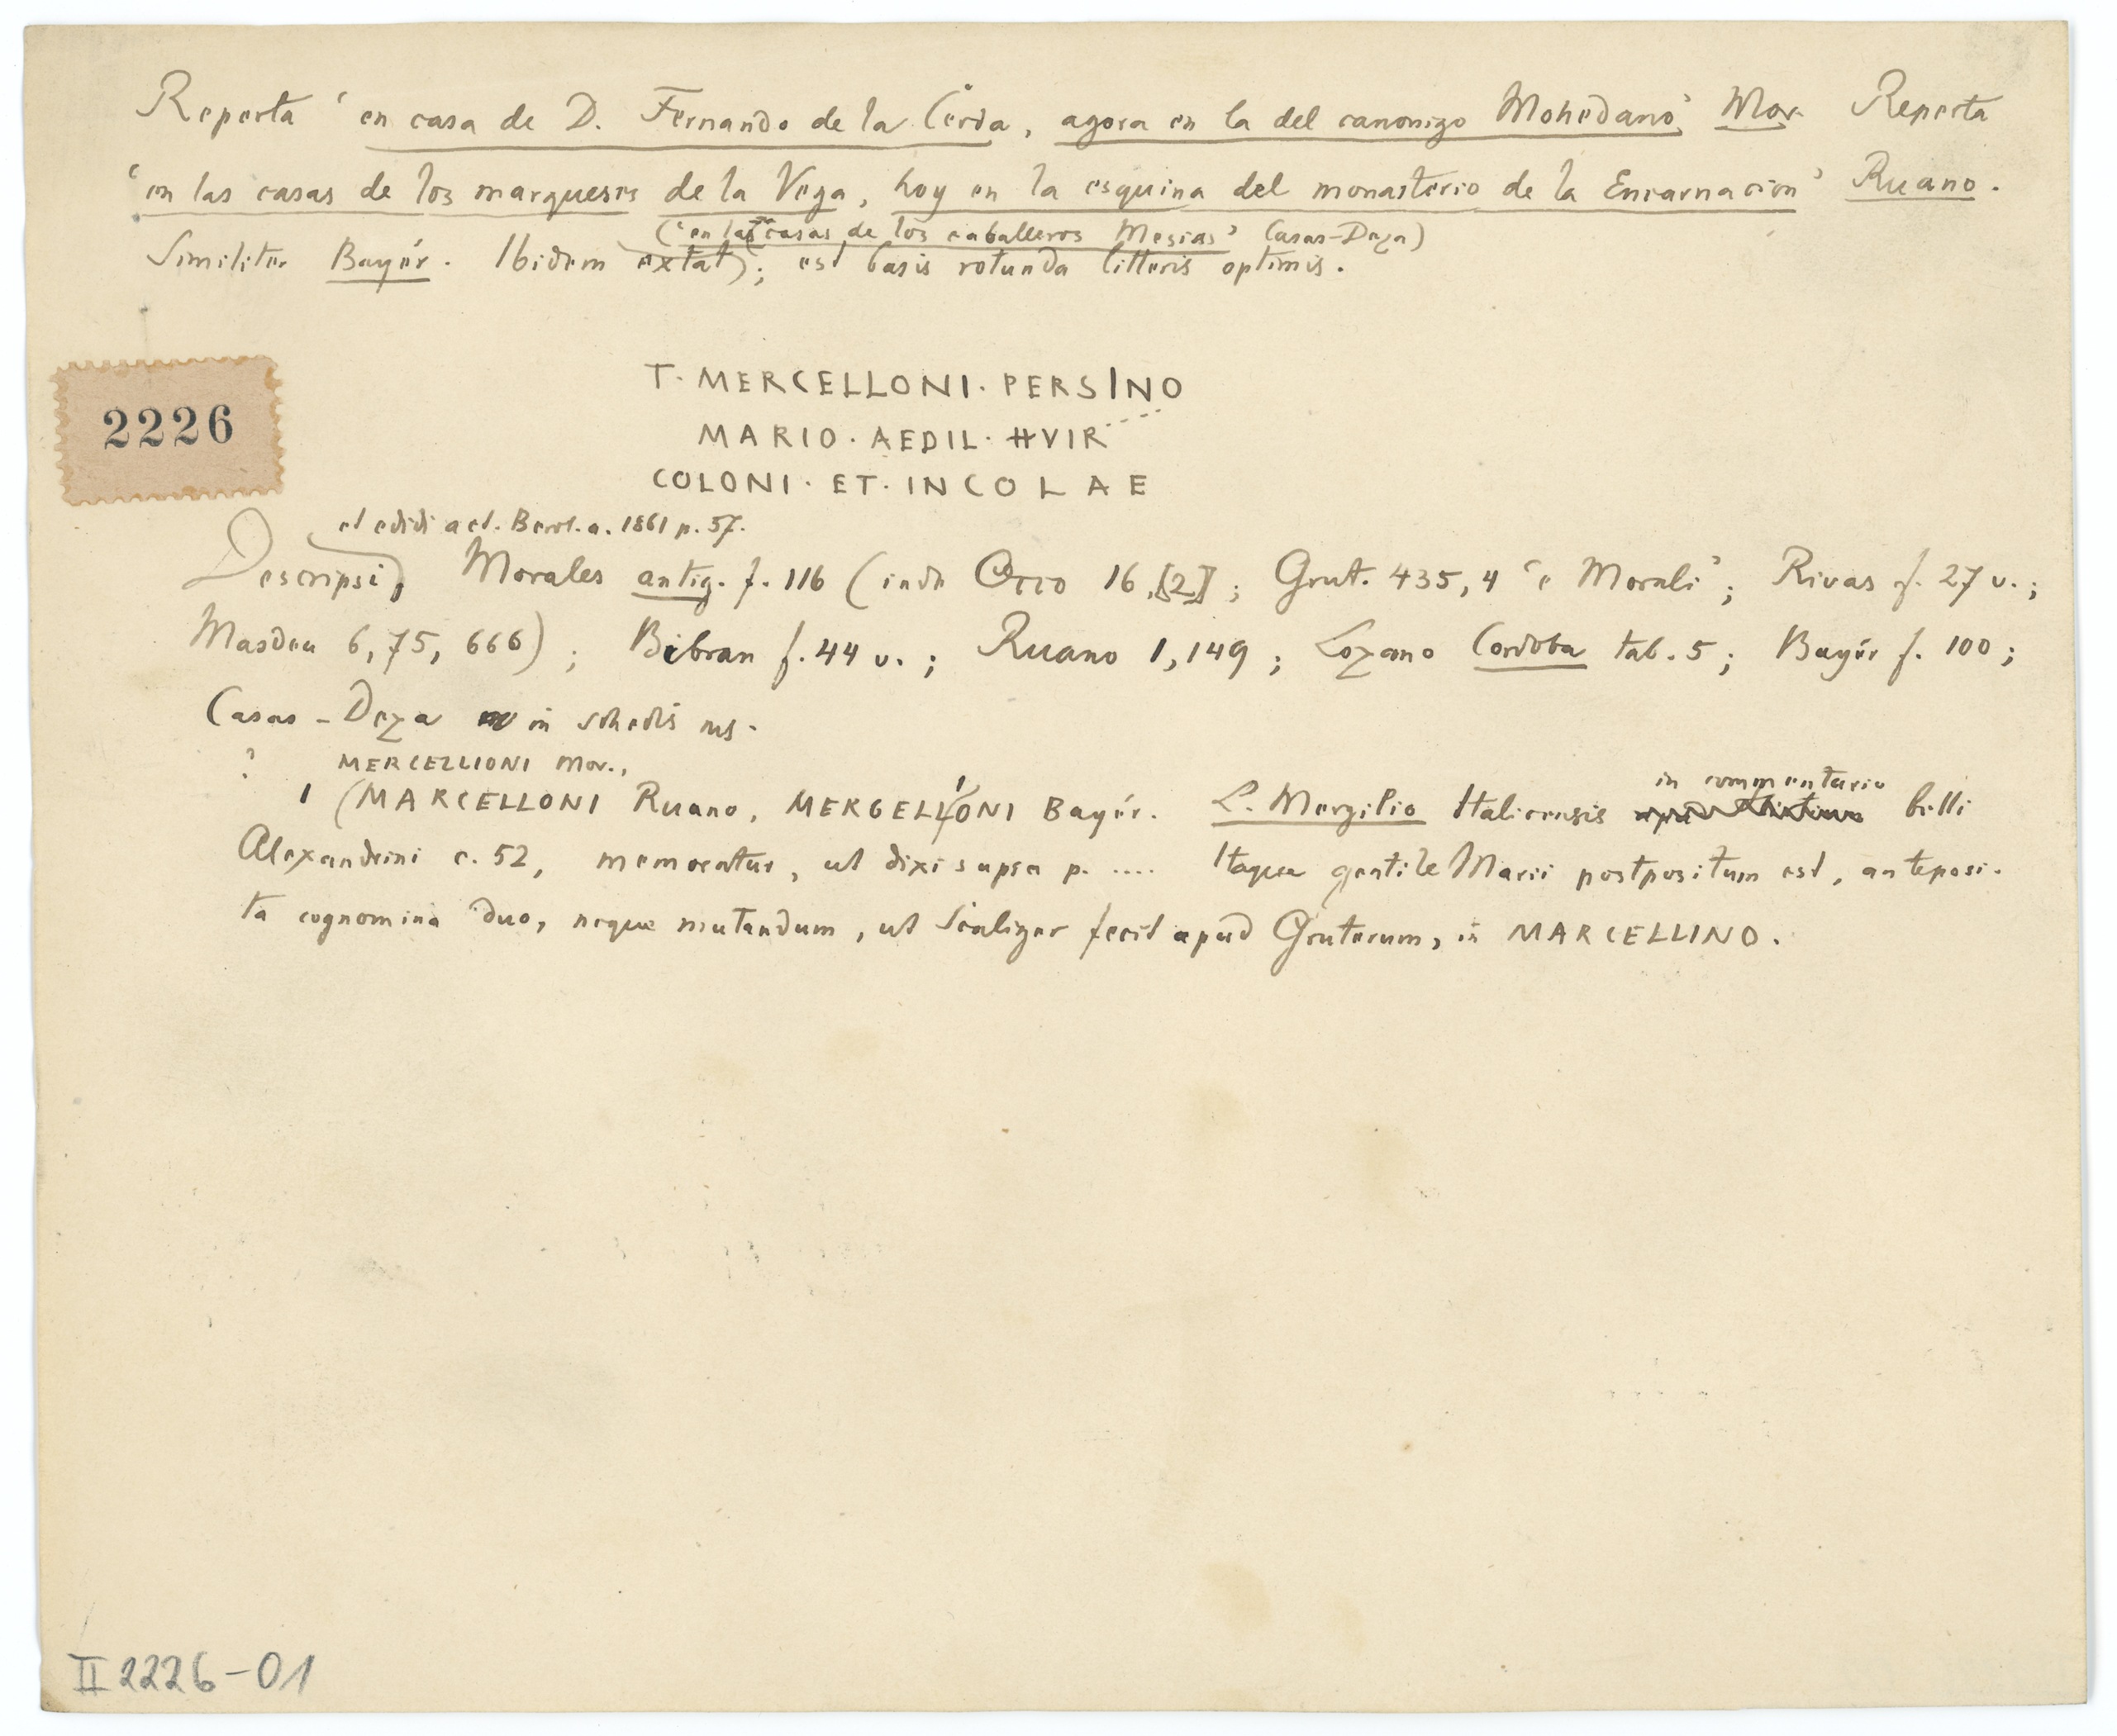 Reperta ‘en casa de D. Fernando de la Cerda, agora en la del canonigo Mohedano’ Mor. Reperta
‘en las casas de los marqueses de la Vega, hoy en la esquina del monasterio de la Encarnacion’ Ruano.
(‘en las casas de los caballeros Mesias’ Casas-Deza)
Similiter Bayér. Ibidem extat); est basis rotunda litteris optimis.
2226
T. MERCELLONI. PERSINO
MARIO. AEDIL. IIVIR
COLONI. ET. INCOLAE
et edidi act. Berol. a. 1861 p. 57.
Descripsi, Morales antig. f. 116 (inde Occo 16, [2]; Grut. 435, 4 ‘e Morali’; Rivas f. 27 v.;
Masdeu 6, 75, 666); Bibran f. 44 v.; Ruano 1, 149; Lozano Cordoba tab. 5; Bayér f. 100;
Casas-Deza in schedis ms.
? MERCELLIONI Mor.,
1 (MARCELLONI Ruano, MERGELLONI Bayér. L. Mergilio Italicensis in commentario belli
Alexandrini c. 52, memoratur, ut dixi supra p. .... Itaque gentile Marii postpositum est, anteposi-
ta cognomina duo, neque mutandum, ut Scaliger fecit apud Gruterum, in MARCELLINO.
II 2226-01